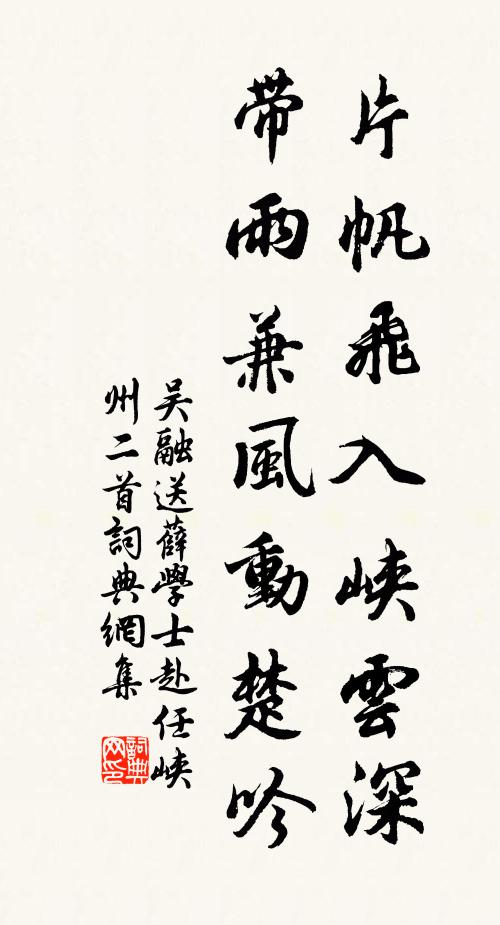 片帆飛入峽雲深
带雨兼風動楚吟
吴融送薛學士赴任峽
州二首詞典網集
詞典
网印